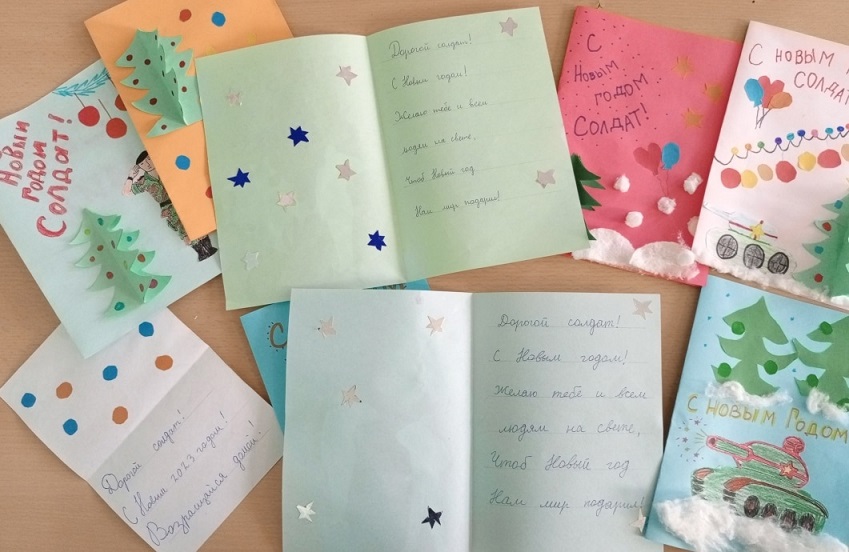 Новым
годом
Солдат!
Дорогой солдат!
С Новым годом!
Желаю тебе и всем
людям на свете,
Чтоб Новый год
Нам мир подарил!
С
Новым
годом
Солдат!
С новым
солдат
Дорогой солдат!
С Новым 2023 годом!
Возвращайся домой!
С
Дорогой солдат!
С Новым годом!
Желаю тебе и всем
людям на свете,
Чтоб Новый год
Нам мир подарил!
С Новым Годом